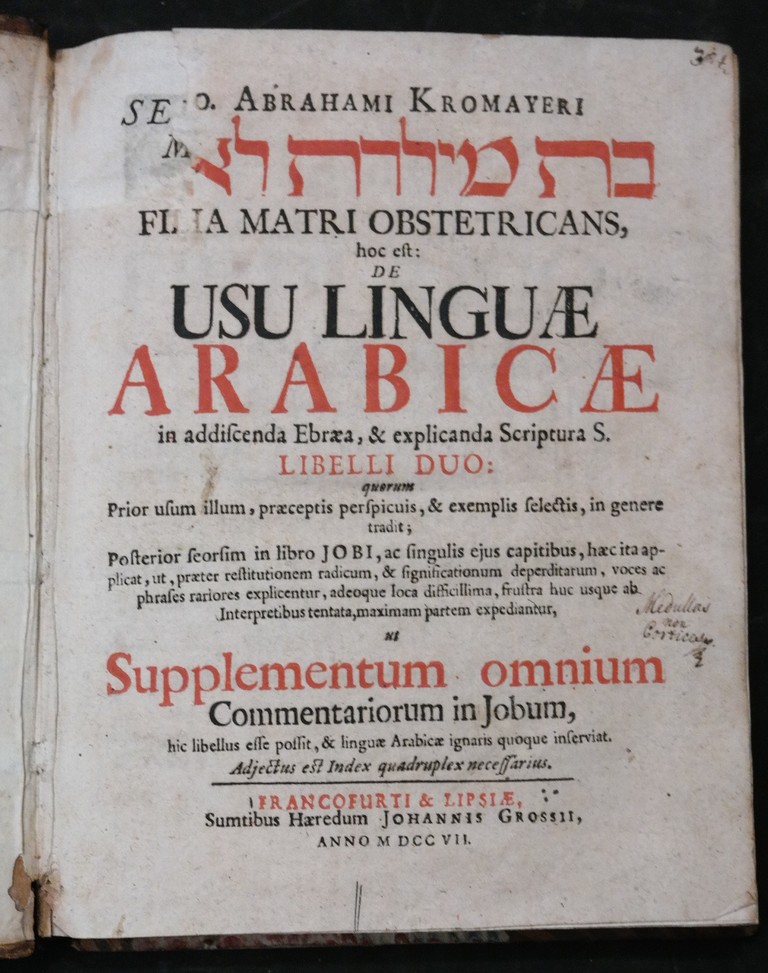 SE O. ABRAHAMI KROMAYERI
M בת מילדת לא
FILIA MATRI OBSTETRICANS,
hoc eſt:
DE
USU LINGUÆ
ARABICÆ
in addiſcenda Ebræa, & explicanda Scriptura S.
LIBELLI DUO:
quorum
Prior uſum illum, præceptis perſpicuis, & exemplis ſelectis, in genere
tradit;
Poſterior ſeorſim in libro JOBI, ac ſingulis ejus capitibus, hæc ita ap-
plicat, ut, præter reſtitutionem radicum, & ſignificationum deperditarum, voces ac
phraſes rariores explicentur, adeoque loca difficillima, fruſtra huc usque ab
Interpretibus tentata, maximam partem expediantur,
Medullas
non
ut
Supplementum omnium
Commentariorum in Jobum,
hic libellus eſſe poſſit, & linguæ Arabicæ ignaris quoque inſerviat.
Adjectus eſt Index quadruplex neceſſarius.
FRANCOFURTI & LIPSIÆ,
Sumtibus Hæredum JOHANNIS GROSSII,
ANNO M DCC VII.